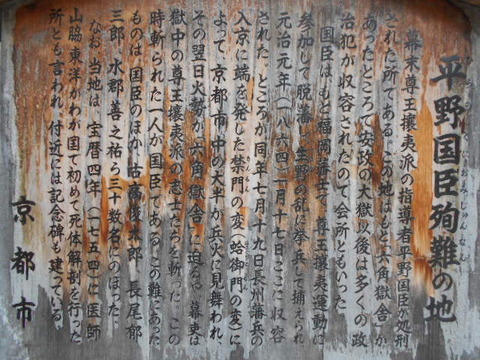 平野国臣殉難の地
幕末尊王攘夷派の指導者平野国臣が処刑
された所である。この地はもと「六角獄舎」が
あったところで安政の大獄以後は多くの政
治犯が収容されたので会所ともいった。
国臣はもと福岡藩士で、尊王攘夷運動に
参加して脱藩し、生野の乱に挙兵して捕えられ
元治元年(一八六四)一月十七日ここに収容
された。ところが同年七月十九日長州藩兵の
入京に端を発した禁門の変(蛤御門の変)に
よって、京都市中の大半が兵火に見舞われ、
その翌日火勢が「六角獄舎」に迫るや幕吏は
獄中の尊王攘夷派の志士たちを斬った。この
時斬られた一人が国臣である。この難にあった
ものは、国臣のほか古高俊太郎、長尾郁
三郎、水郡善之祐ら三十数名にのぼった。
なお、当地は、宝暦四年(一七五四)に医師
山脇東洋がわが国で初めて死体解剖を行った
所とも言われ、付近には記念碑も建っている。
京都市